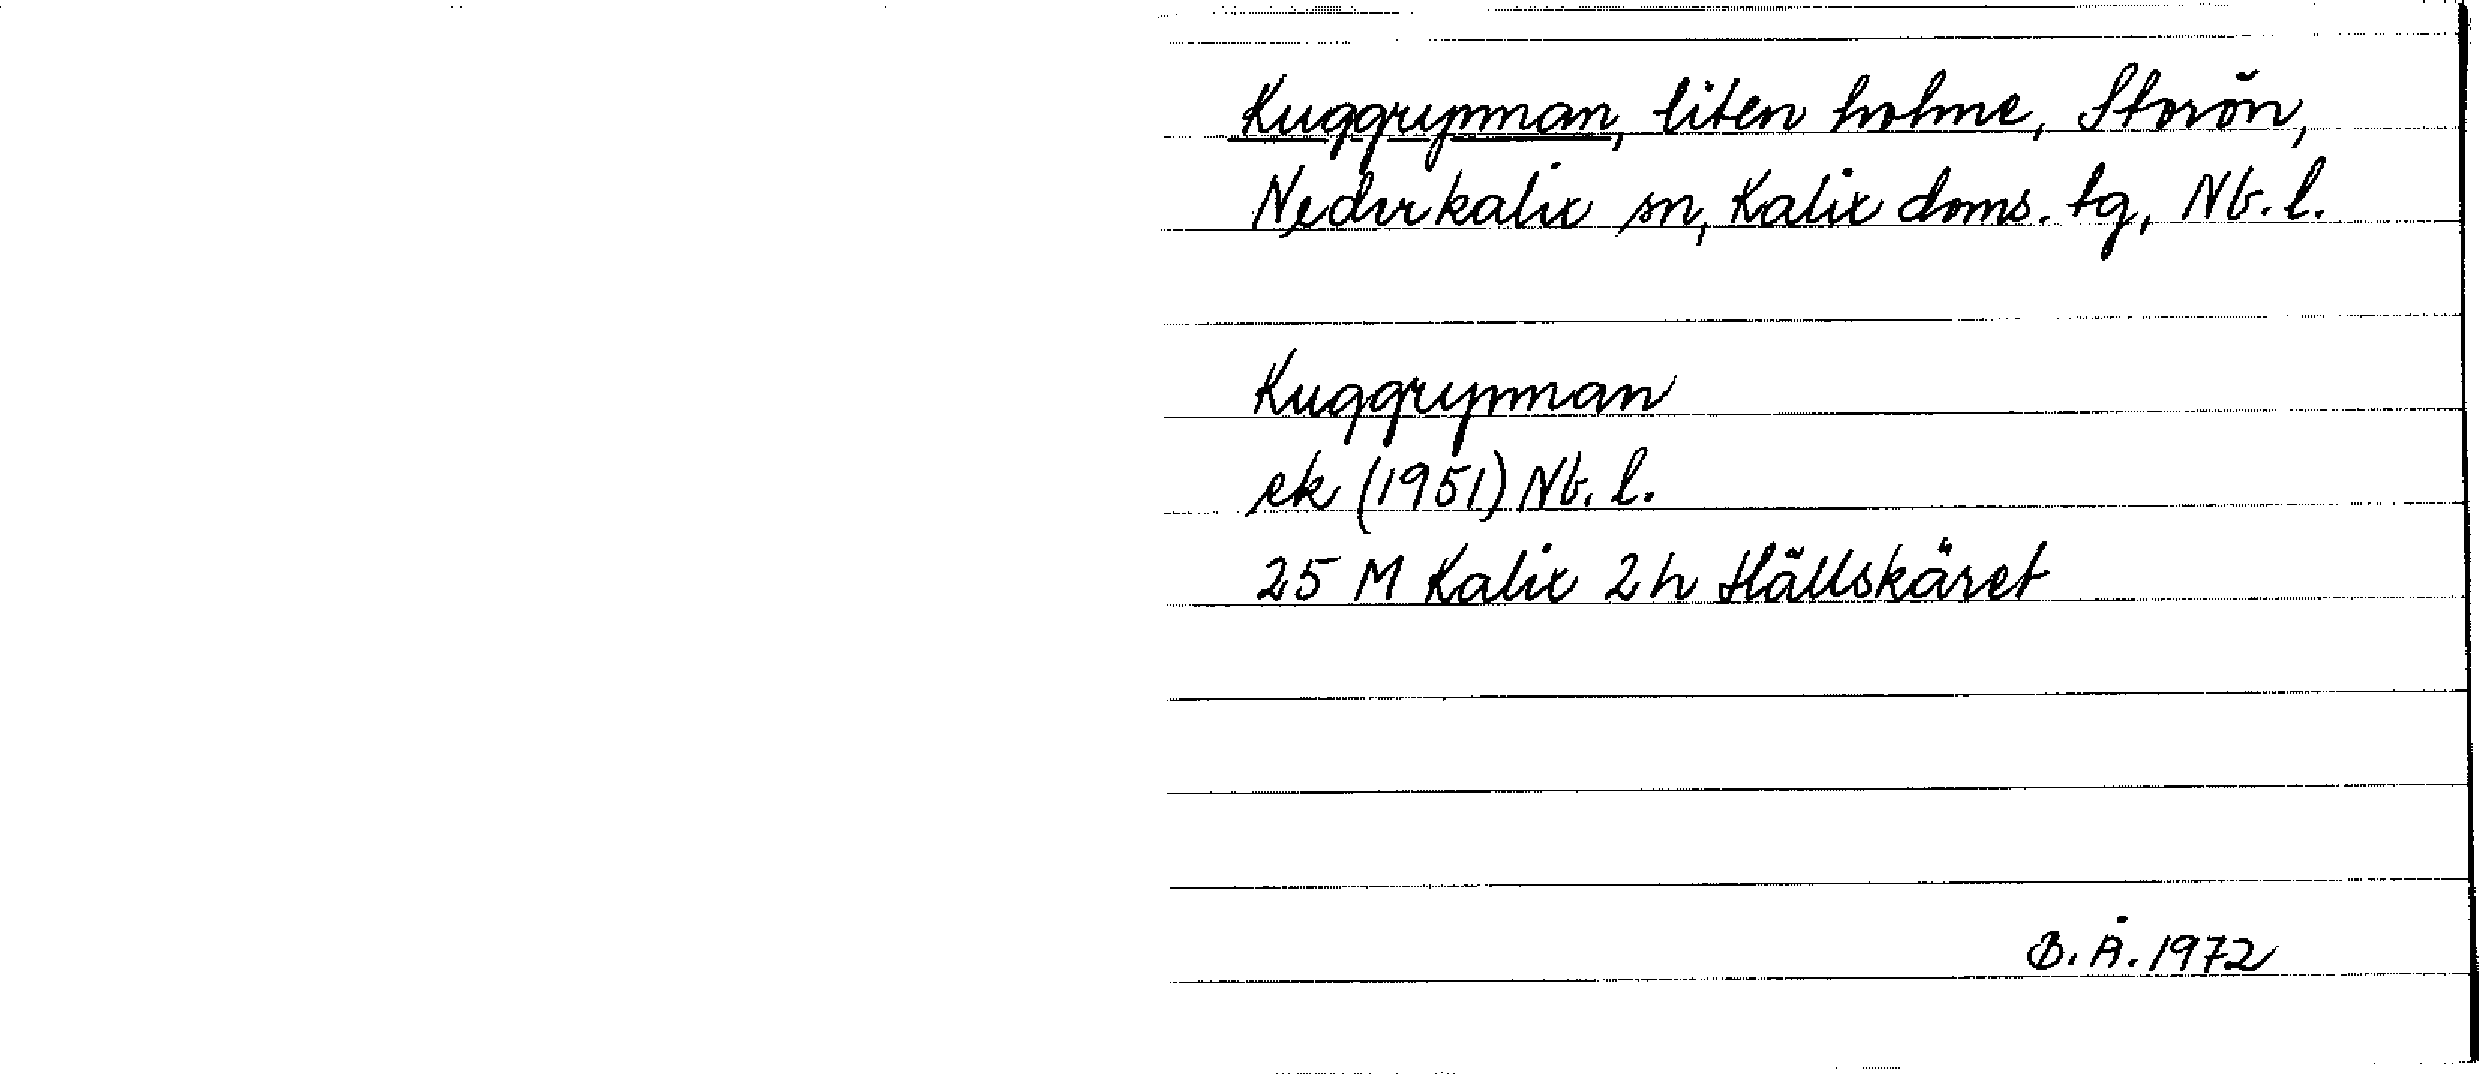 Kuggrynnan, liten holme, Storön,
Nederkalix sn, Kalix doms. tg, Nb. l.
Kuggrynnan
ek (1951) Nb. l.
25 M Kalix 2 h Hällskäret
B. Å. 1972